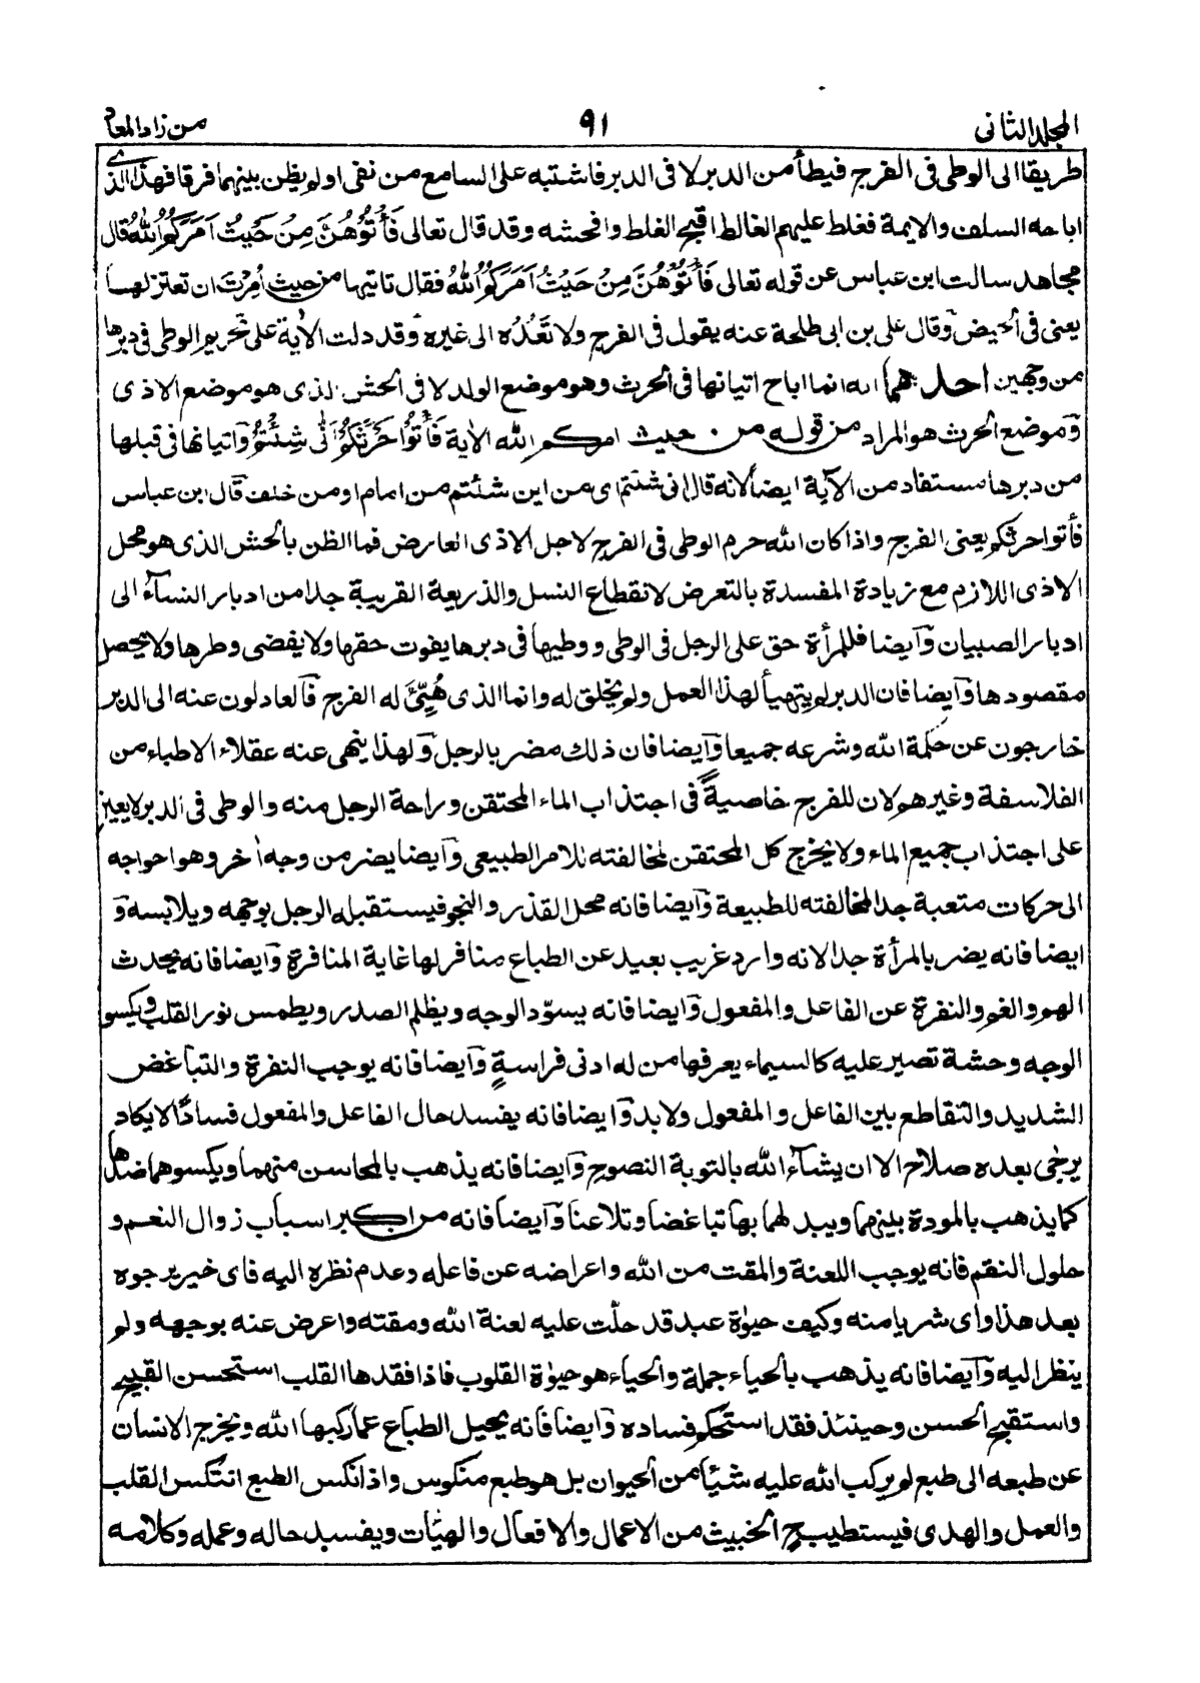 المجلد الثانى ٩١ من زاد المعاد
طريقا الى الوطى فى الفرج فيطأ من الدبر لا فى الدبر فاشتبه على السامع من نفى او لم يظن بينهما فرقا فهذا الذى
اباحه السلف والايمة فغلط عليهم الغالط اقبح الغلط وافحشه وقد قال تعالى فَأْتُوْهُنَّ مِنْ حَيْثُ اَمَرَكُمُ اللّٰهُ قال
مجاهد سالت ابن عباس عن قوله تعالى فَأْتُوْهُنَّ مِنْ حَيْثُ اَمَرَكُمُ اللّٰهُ فقال تاتيها من حيث اُمِرْتَ ان تعتزلها
يعنى فى الحيض وقال على بن ابى طلحة عنه يقول فى الفرج ولا تَعْدُه الى غيره وقد دلت الاٰية على تحريم الوطى فى دبرها
من وجهين احدهما انه انما اباح اتيانها فى الحرث وهو موضع الولد لا فى الحش الذى هو موضع الاذى
وموضع الحرث هو المراد من قوله من حيث امركم الله الاٰية فَأْتُوْا حَرْثَكُمْ اَنّٰى شِئْتُمْ واتيانها فى قبلها
من دبرها مستفاد من الآية ايضا لانه قال انى شئتم اى من اين شئتم من امام او من خلف قال ابن عباس
فأتوا حرثكم يعنى الفرج واذا كان الله حرم الوطى فى الفرج لاجل الاذى العارض فما الظن بالحش الذى هو محل
الاذى اللازم مع زيادة المفسدة بالتعرض لانقطاع النسل والذريعة القريبة جدا من ادبار النسآء الى
ادبار الصبيان وآيضا فللمرأة حق على الرجل فى الوطى ووطيها فى دبرها يفوت حقها ولا يفضى وطرها ولا يحصل
مقصودها وآيضا فان الدبر لم يتهيأ لهذا العمل ولم يخلق له وانما الذى هُيِّئَ له الفرج فالعادلون عنه الى الدبر
خارجون عن حكمة الله وشرعه جميعا وآيضا فان ذلك مضر بالرجل ولهذا ينهى عنه عقلاء الاطباء من
الفلاسفة وغيرهم لان للفرج خاصيةً فى اجتذاب الماء المحتقن وراحة الرجل منه والوطى فى الدبر لا يعين
على اجتذاب جميع الماء ولا يخرج كل المحتقن لمخالفته للامر الطبيعى وآيضا يضر من وجه اٰخر وهو احواجه
الى حركات متعبة جدا لمخالفته للطبيعة وآيضا فانه محل القذر والنجو فيستقبله الرجل بوجهه ويلابسه و
ايضا فانه يضر بالمرأة جدا لانه وارد غريب بعيد عن الطباع منافر لها غاية المنافرة وآيضا فانه يحدث
الهم والغم والنفرة عن الفاعل والمفعول وآيضا فانه يسوّد الوجه ويظلم الصدر ويطمس نور القلب ويكسو
الوجه وحشة تصير عليه كالسيماء يعرفها من له ادنى فراسةٍ وآيضا فانه يوجب النفرة والتباغض
الشديد والتقاطع بين الفاعل والمفعول ولا بد وآيضا فانه يفسد حال الفاعل والمفعول فسادًا لا يكاد
يرجٰى بعده صلاح الا ان يشآء الله بالتوبة النصوح وآيضا فانه يذهب بالمحاسن منهما ويكسوهما ضدها
كما يذهب بالمودة بينهما ويبدلهما بها تباغضا وتلاعنا وآيضا فانه من اكبر اسباب زوال النعم و
حلول النقم فانه يوجب اللعنة والمقت من الله واعراضه عن فاعله وعدم نظره اليه فاى خير يرجوه
بعد هذا واى شر يامنه وكيف حيوٰة عبد قد حلّت عليه لعنة الله ومقته واعرض عنه بوجهه ولم
ينظر اليه وآيضا فانه يذهب بالحياء جملة والحياء هو حيوٰة القلوب فاذا فقدها القلب استحسن القبيح
واستقبح الحسن وحينئذ فقد استحكم فساده وآيضا فانه يحيل الطباع عما ركبها الله ويخرج الانسان
عن طبعه الى طبع لم يركب الله عليه شيأ من الحيوان بل هو طبع منكوس واذا نكس الطبع انتكس القلب
والعمل والهدى فيستطيب ح الخبيث من الاعمال والافعال والهيّات ويفسد حاله وعمله وكلامه